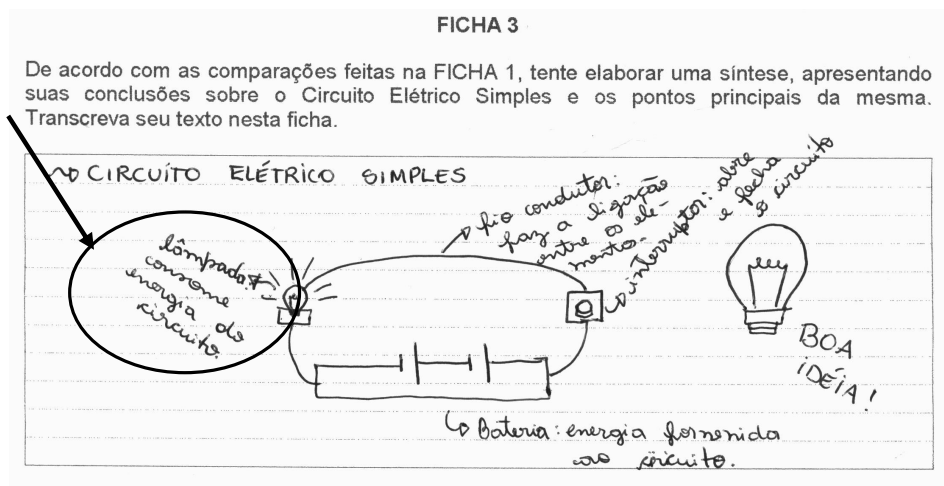 FICHA 3
De acordo com as comparações feitas na FICHA 1, tente elaborar uma síntese, apresentando
suas conclusões sobre o Circuito Elétrico Simples e os pontos principais da mesma.
Transcreva seu texto nesta ficha.
CIRCUÍTO ELÉTRICO SIMPLES
fio condutor:
faz a ligação
entre os ele-
mentos.
interruptor: abre
e fecha
o circuito
lâmpada:
consome
energia do
circuito.
BOA
IDÉIA!
Bateria: energia fornenida
ao circuito.